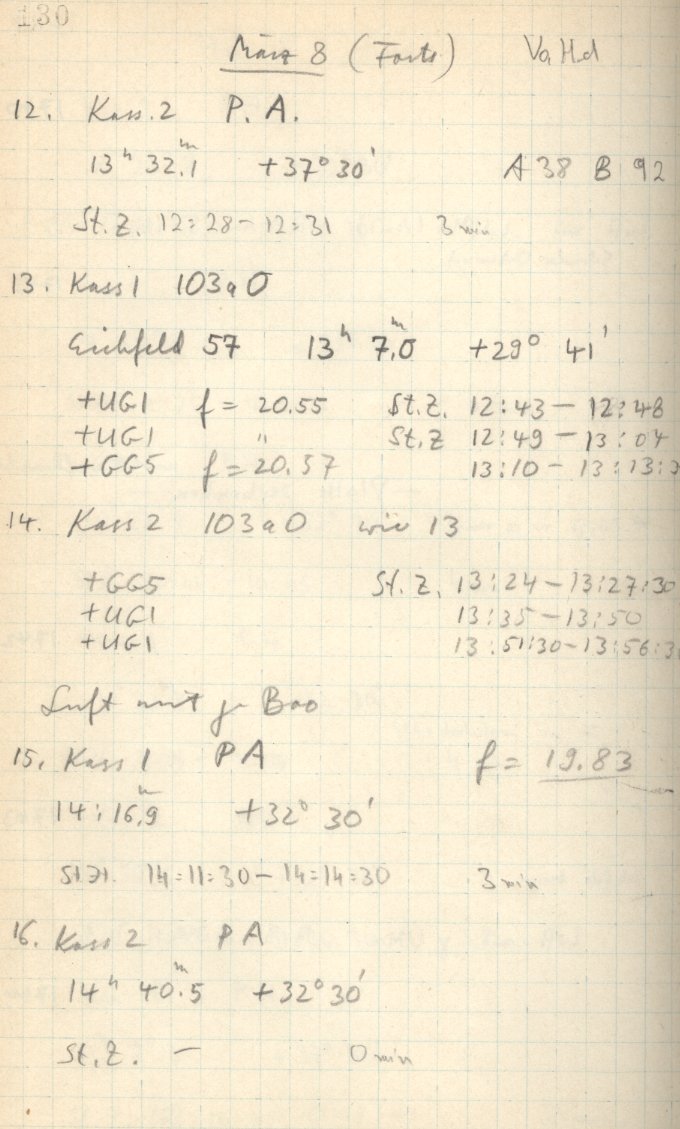 130
März 8 (Forts) Va, H.d
12. Kass. 2 P. A.
13ʰ 32.1ᵐ +37° 30' A 38 B 92
St. Z. 12:28 – 12:31 3 min
13. Kass 1 103aO
Eichfeld 57 13ʰ 7,0ᵐ +29° 41'
+UG1 f = 20.55 St. Z. 12:43 – 12:48
+UG1 " St. Z 12:49 – 13:04
+GG5 f = 20.57 13:10 – 13:13:
14. Kass 2 103aO wie 13
+GG5 St. Z. 13:24 – 13:27:30
+UG1 13:35 – 13:50
+UG1 13:51:30 – 13:56:3
Luft mit
15. Kass 1 PA f = 19.83
14:16,9ᵐ +32° 30'
St. Zt. 14:11:30 – 14:14:30 3 min
16. Kass 2 PA
14ʰ 40.5ᵐ +32° 30'
St. Z. – 0 min